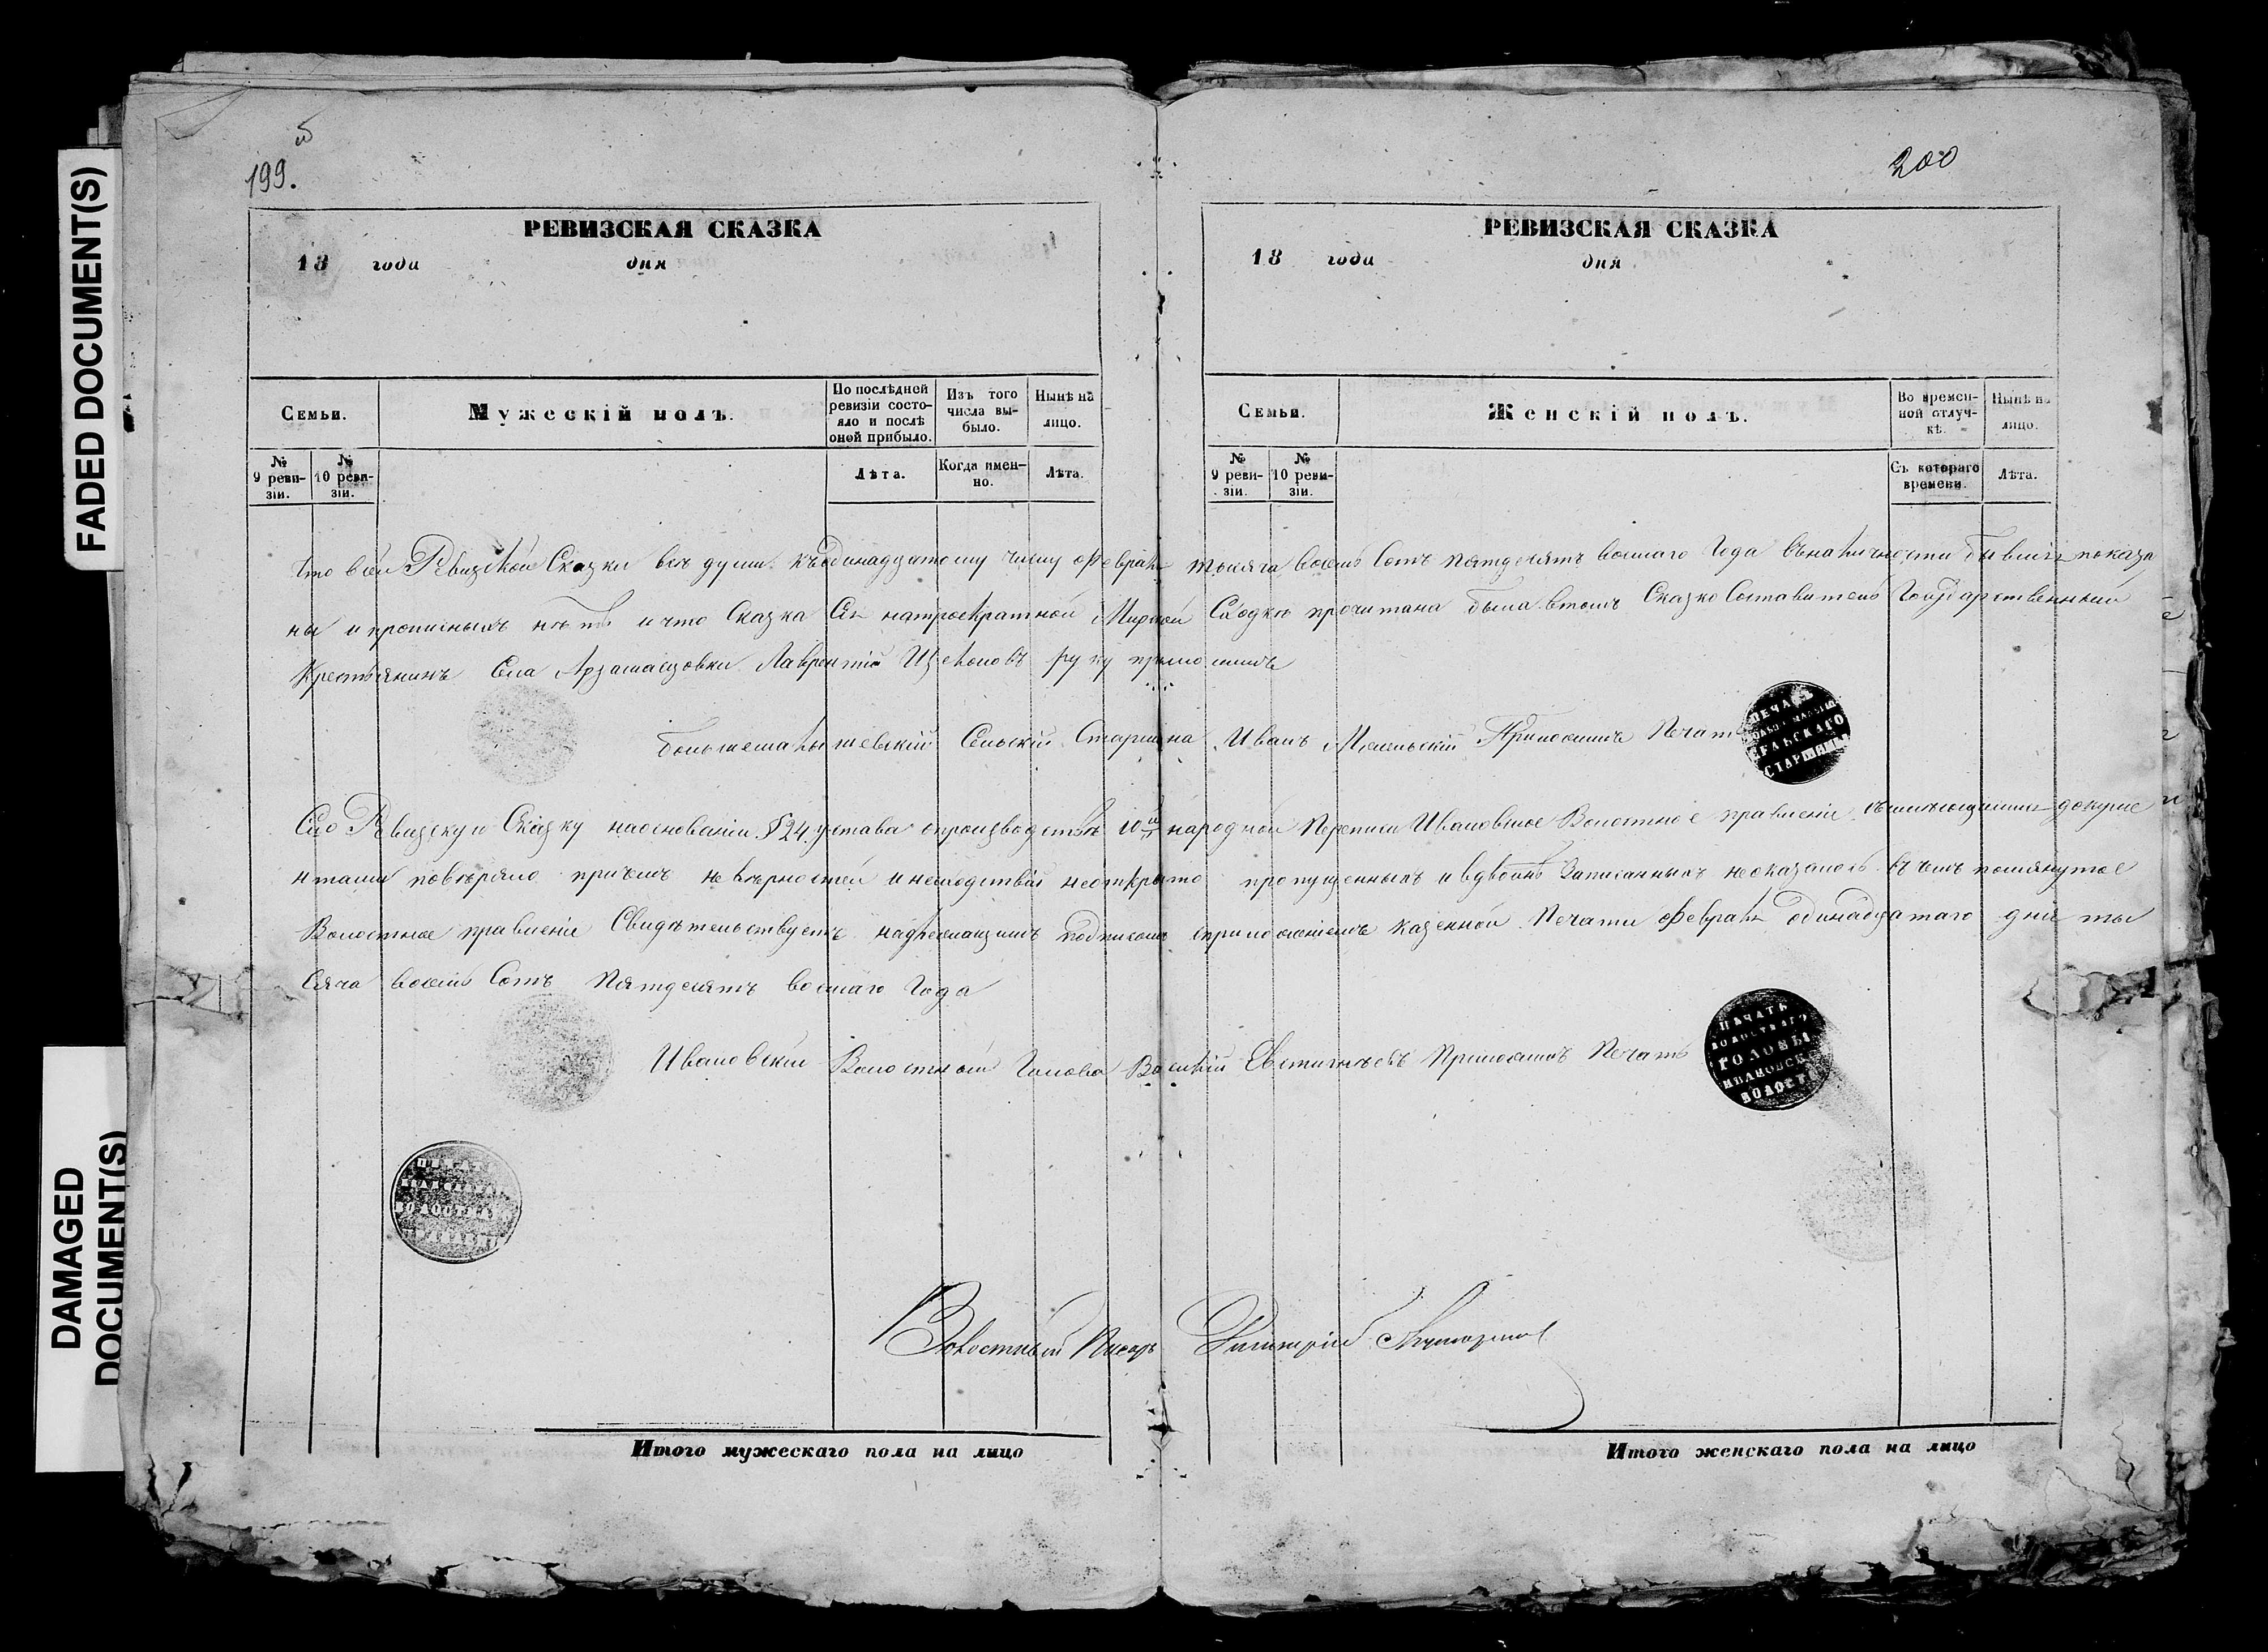 FADED DOCUMENT(S)
DAMAGED
DOCUMENT(S)
199.
РЕВИЗСКАЯ СКАЗКА
18 года дня
Семьи.
Мужескій полъ.
По послѣдней ревизіи состояло и послѣ оной прибыло.
Изъ того числа выбыло.
Нынѣ на лицо.
№ 9 ревизіи.
№ 10 ревизіи.
Лѣта.
Когда именно.
Лѣта.
200
РЕВИЗСКАЯ СКАЗКА
18 года дня
Семьи.
Женскій полъ.
Во временной отлучкѣ.
Нынѣ на лицо.
№ 9 ревизіи.
№ 10 ревизіи.
Съ котораго времени.
Лѣта.
Что всей Ревизкой Сказки всѣ души къ одинадцатому числу Февраля тысяча восемь Сотъ пятдесятъ восмаго Года въ наличности бывшія показа
ны и прописныхъ нѣтъ и что Сказка Сія на троекратной Мирской Сходкѣ прочитана была в томъ Сказко Составитель Государственный
Крестьянинъ Села Арзамасцовки Лаврентій руку приложилъ
Сельскій Старшина Иванъ Приложилъ Печать
ПЕЧАТЬ
СЕЛЬСКАГО
СТАРШИНЫ
Сію Ревизскую Сказку на основаніи §24. устава о производствѣ 10й народной Переписи Ивановское Волостное правленіе съ имѣющимися докуме
нтами повѣряло причемъ невѣрностей и несходствій неоткрыто пропущенныхъ и вдвойнѣ Записанныхъ неоказалось въ чемъ помянутое
Волостное правленіе Свидѣтельствуетъ надлежащимъ подписомъ с приложеніемъ казенной Печати Февраля одинадцатаго дня ты
сяча восемь Сотъ Пятдесятъ восмаго Года
Ивановскій Волостной Голова Василій Евстигнѣевъ Приложилъ Печать
ПЕЧАТЬ
ВОЛОСТНАГО
ГОЛОВЫ
ИВАНОВСКО
ВОЛОСТ
ПЕЧАТЬ
ВОЛОСТНА
Волостной Писарь Димитрій
Итого мужескаго пола на лицо
Итого женскаго пола на лицо